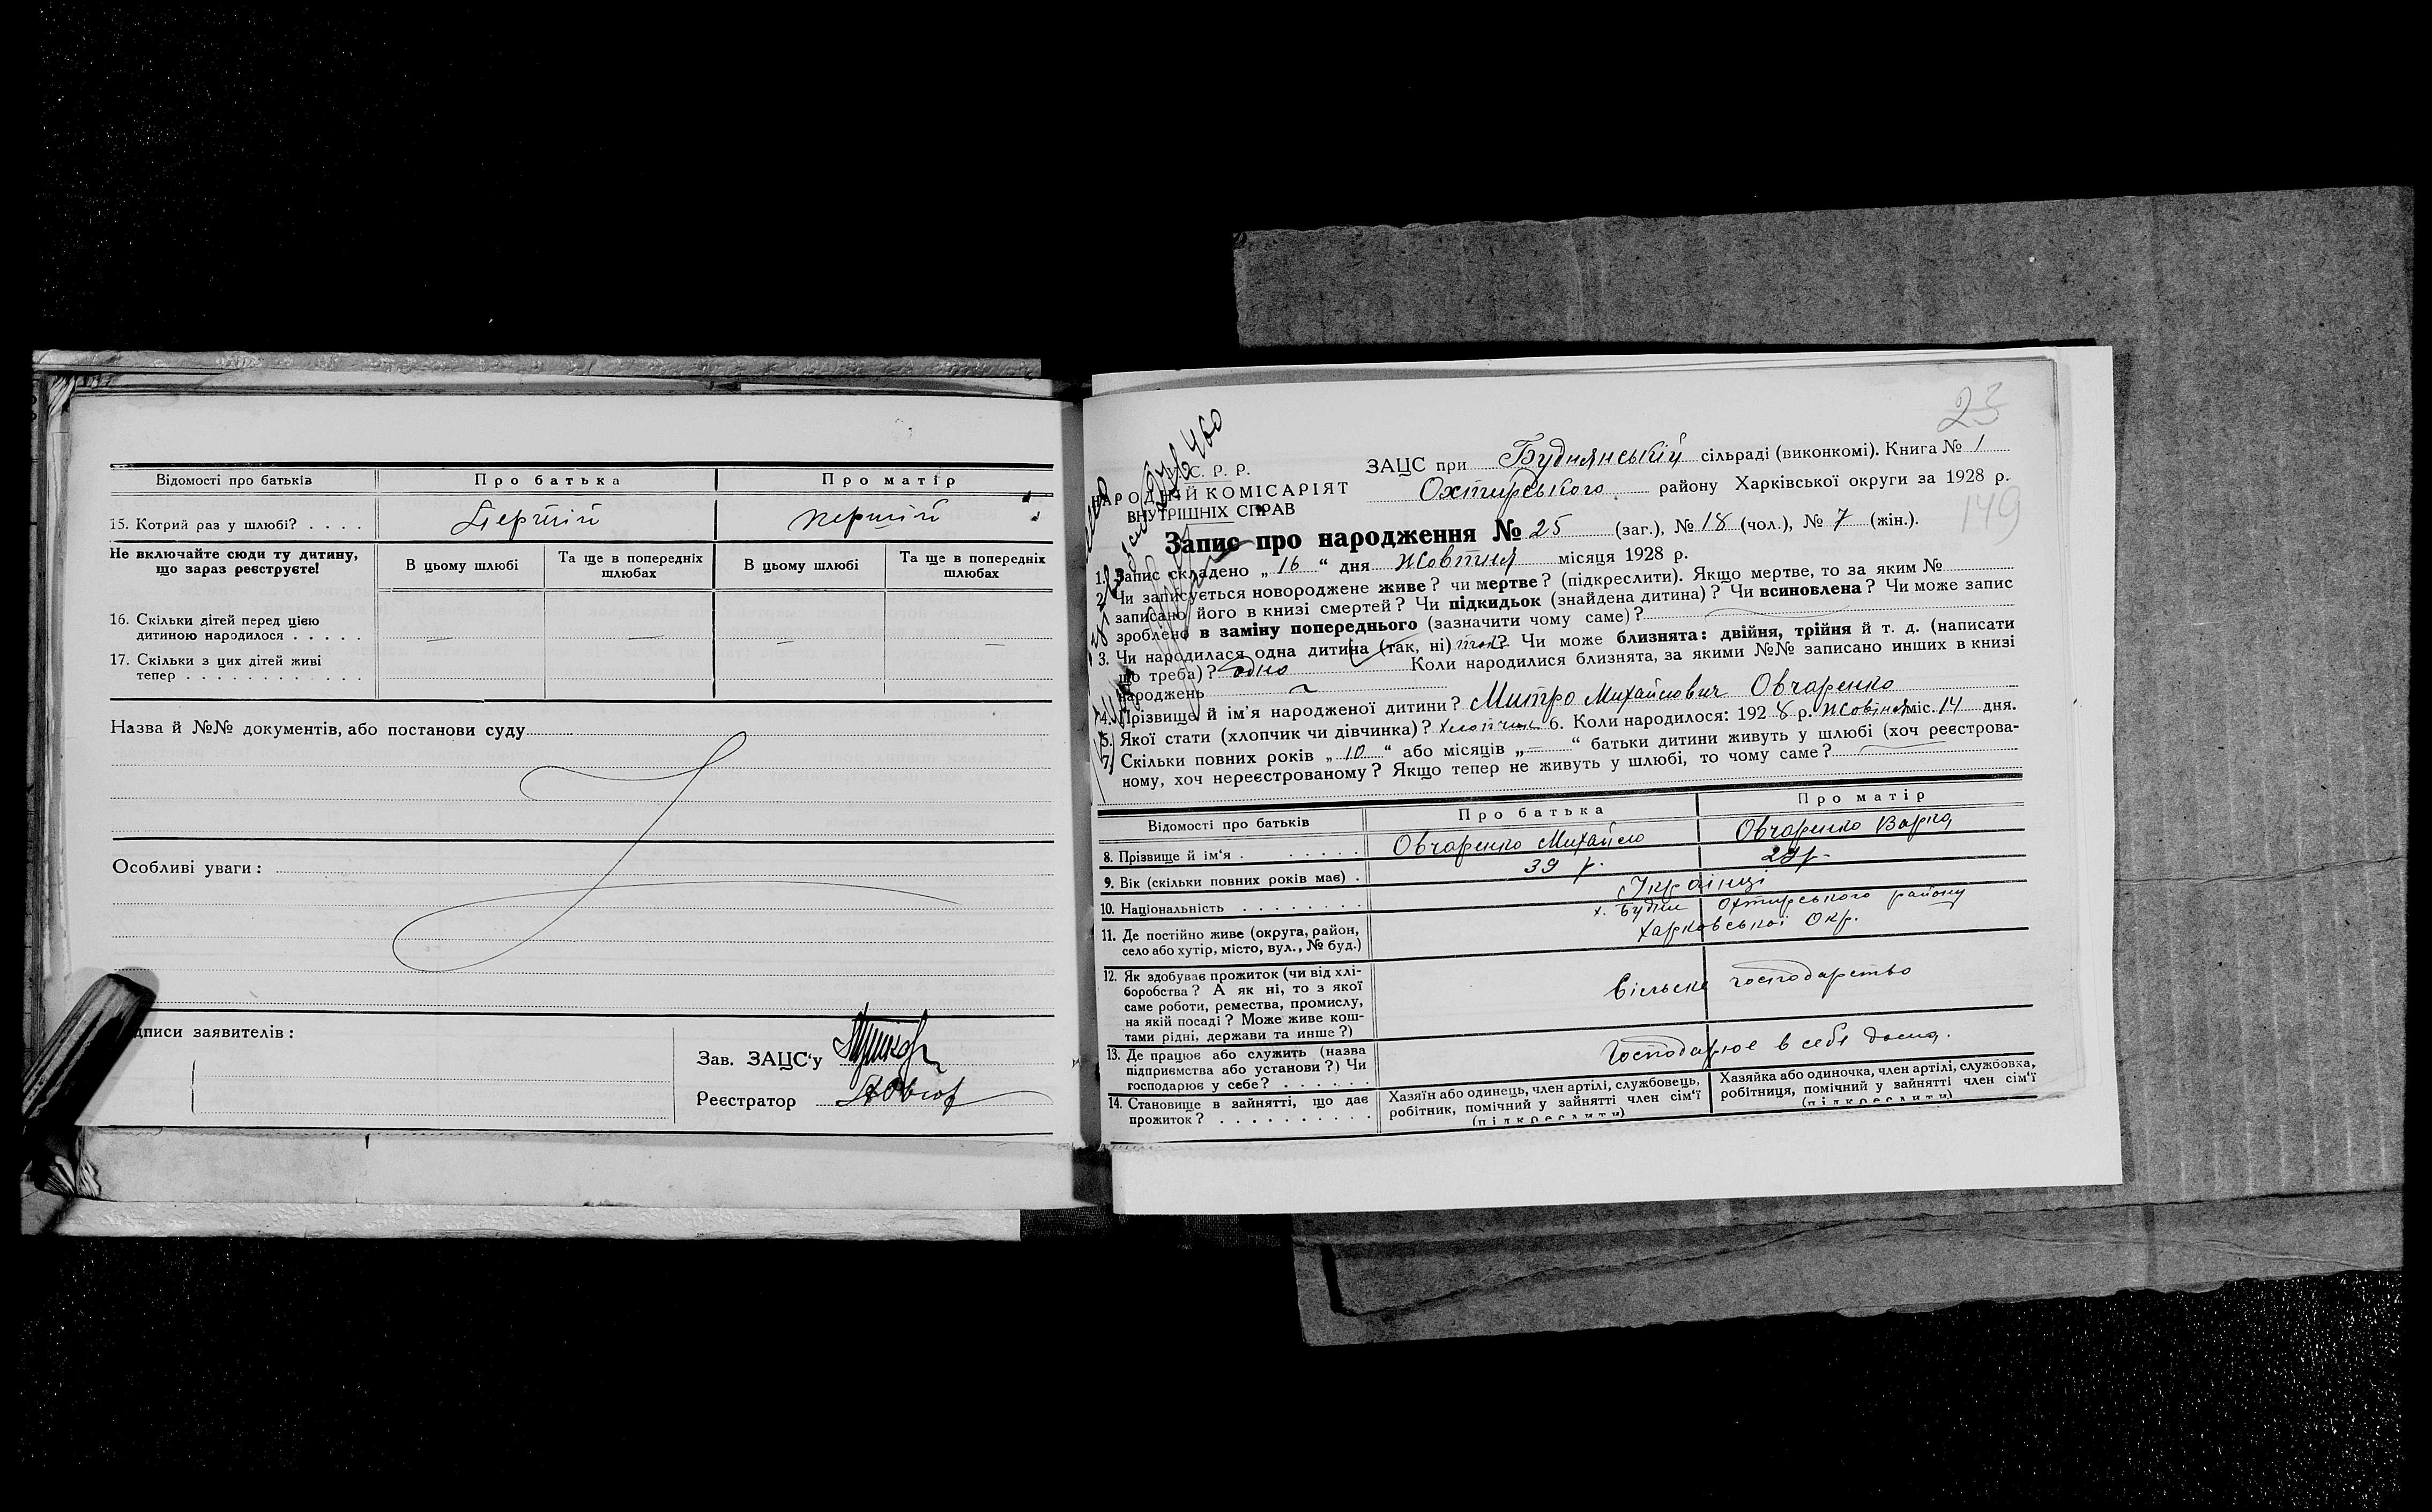 Відомості про батьків Про батька Про матір
15. Котрий раз у шлюбі? . . . . Перший перший
Не включайте сюди ту дитину, що зараз реєструєте!
В цьому шлюбі Та ще в попередніх шлюбах В цьому шлюбі Та ще в попередніх шлюбах
16. Скільки дітей перед цією
дитиною народилося . . . . . — — — —
17. Скільки з цих дітей живі
тепер . . . . . . . . . . . .
Назва й №№ документів, або постанови суду
Особливі уваги:
дписи заявителів:
Зав. ЗАЦС'у
Реєстратор
23
С. Р. Р.
НАРОДНІЙ КОМІСАРІЯТ
ВНУТРІШНІХ СПРАВ
ЗАЦС при Буднянській сільраді (виконкомі). Книга № 1
Охтирського району Харківської округи за 1928 р.
149
Запис про народження № 25 (заг.), № 18 (чол.), № 7 (жін.).
1. Запис складено „ 16 “ дня Жовтня місяця 1928 р.
2. Чи записується новороджене живе? чи мертве? (підкреслити). Якщо мертве, то за яким №
записано його в книзі смертей? Чи підкидьок (знайдена дитина)? Чи всиновлена? Чи може запис
зроблено в заміну попереднього (зазначити чому саме)?
3. Чи народилася одна дитина (так, ні) так? Чи може близнята: двійня, трійня й т. д. (написати
що треба)? одно Коли народилися близнята, за якими №№ записано инших в книзі
народжень
4. Прізвище й ім'я народженої дитини? Митро Михайлович Овчаренко
5. Якої стати (хлопчик чи дівчинка)? хлопчик 6. Коли народилося: 1928 р. жовтня міс. 14 дня.
7. Скільки повних років „ 10 “ або місяців „ — “ батьки дитини живуть у шлюбі (хоч реєстрова-
ному, хоч нереєстрованому? Якщо тепер не живуть у шлюбі, то чому саме?
Відомості про батьків Про батька Про матір
8. Прізвище й ім'я . . . . . . . Овчаренко Михайло Овчаренко Варка
9. Вік (скільки повних років має) . 39 р. 29 р.
10. Національність . . . . . . . . Українці
11. Де постійно живе (округа, район,
село або хутір, місто, вул., № буд.)
х. Будни Охтирського району
Харковської Окр.
12. Як здобуває прожиток (чи від хлі-
боробства? А як ні, то з якої
саме роботи, ремества, промислу,
на якій посаді? Може живе кош-
тами рідні, держави та инше?)
сільске господарство
13. Де працює або служить (назва
підприємства або установи?) Чи
господарює у себе? . . . . . .
Господарює в себе дома.
14. Становище в зайнятті, що дає
прожиток? . . . . . . . . . .
Хазяїн або одинець, член артілі, службовець,
робітник, помічний у зайнятті член сім'ї
(підкреслити)
Хазяйка або одиночка, член артілі, службовка,
робітниця, помічний у зайнятті член сім'ї
(підкреслити)